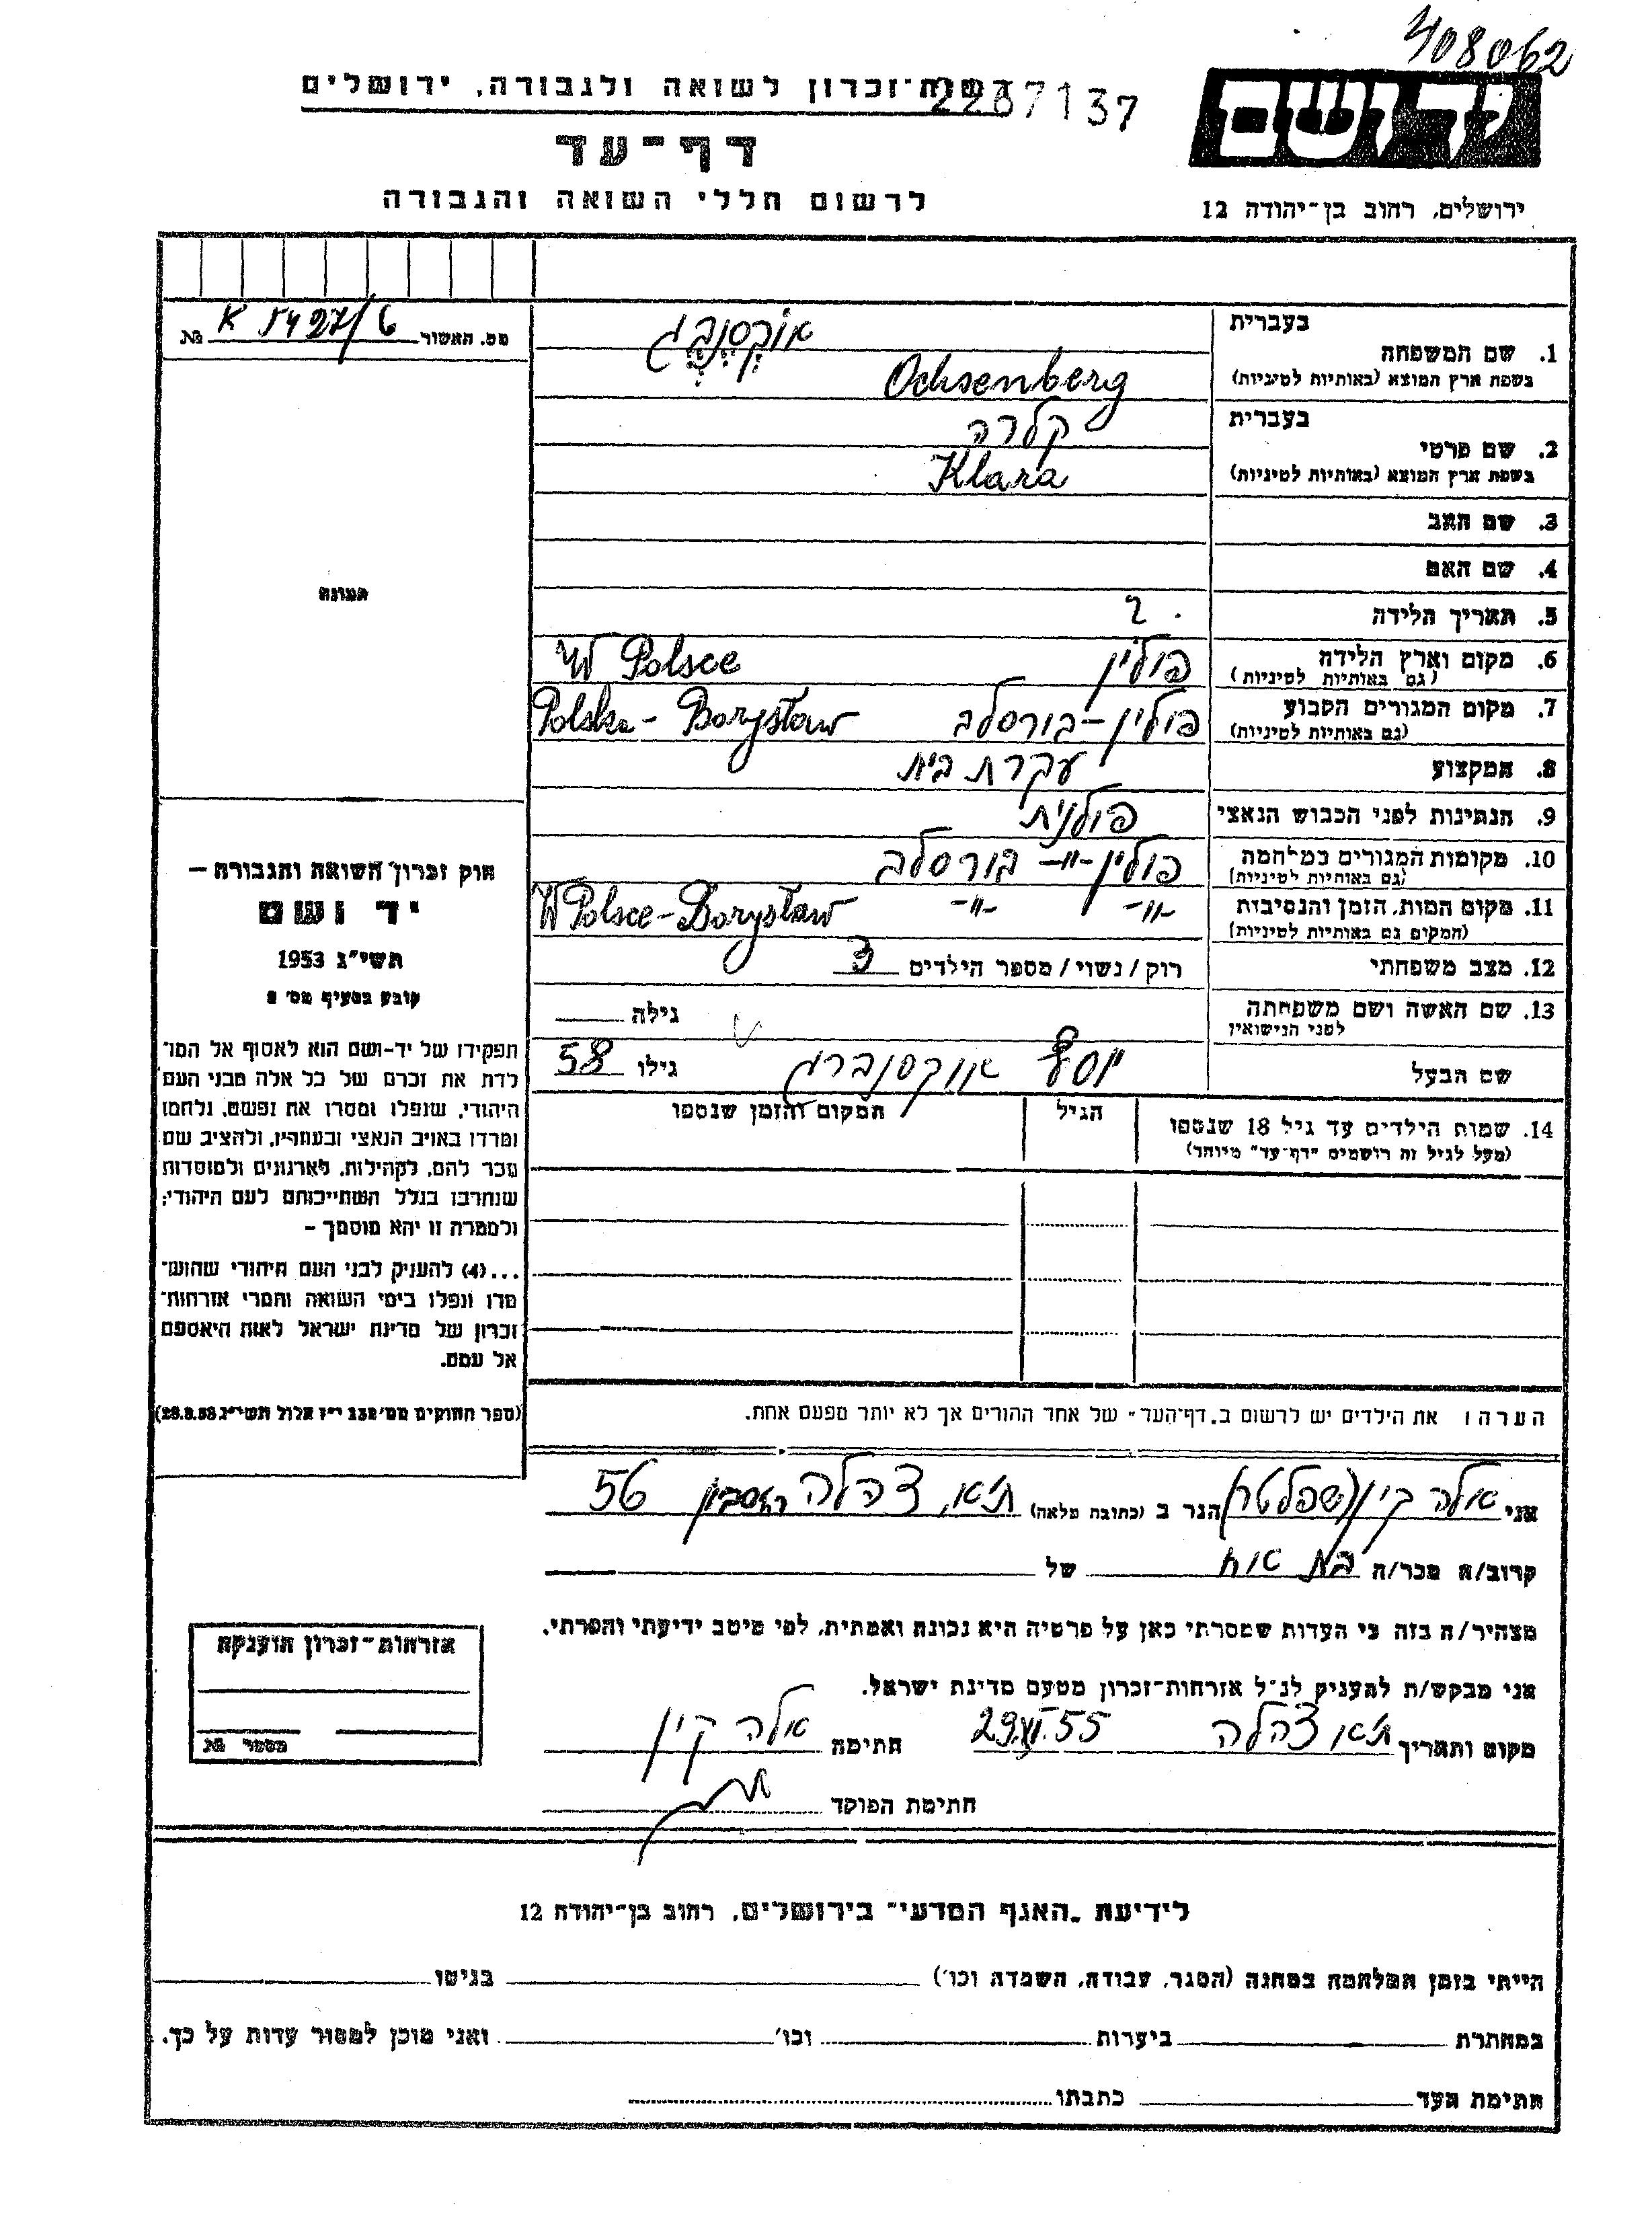 408062
רשות־זכרון לשואה ולגבורה, ירושלים
2267137
יד ושם
דף־עד
לרשום חללי השואה והגבורה
ירושלים, רחוב בן־יהודה 12
מס. האשור K 5427/6 №
תמונה
חוק זכרון השואה והגבורה –
יד ושם
תשי"ג 1953
קובע בסעיף מס' 2
תפקידו של יד-ושם הוא לאסוף אל המו־
לדת את זכרם של כל אלה מבני העם
היהודי, שנפלו ומסרו את נפשם, נלחמו
ומרדו באויב הנאצי ובעוזריו, ולהציב שם
וזכר להם, לקהילות, לארגונים ולמוסדות
שנחרבו בגלל השתייכותם לעם היהודי;
ולמטרה זו יהא מוסמך –
...(4) להעניק לבני העם היהודי שהוש־
מדו ונפלו בימי השואה והמרי אזרחות־
זכרון של מדינת ישראל לאות היאספם
אל עמם.
(ספר החוקים מס' 132 י"ז אלול תשי"ג 28.8.53)
1. שם המשפחה
בעברית אוקסנברג
בשפת ארץ המוצא (באותיות לטיניות) Ochsenberg
2. שם פרטי
בעברית קלרה
בשפת ארץ המוצא (באותיות לטיניות) Klara
3. שם האב
4. שם האם
5. תאריך הלידה ?
6. מקום וארץ הלידה פולין W Polsce
(גם באותיות לטיניות)
7. מקום המגורים הקבוע פולין – בורסלב Polska - Borysław
(גם באותיות לטיניות)
8. המקצוע עקרת בית
9. הנתינות לפני הכבוש הנאצי פולנית
10. מקומות המגורים במלחמה פולין -״- בורסלב
(גם באותיות לטיניות)
11. מקום המות, הזמן והנסיבות -״- -״- W Polsce - Borysław
(המקום גם באותיות לטיניות)
12. מצב משפחתי רוק / נשוי / מספר הילדים 3
13. שם האשה ושם משפחתה
לפני הנישואין גילה
שם הבעל יוסף אוקסנברג גילו 58
14. שמות הילדים עד גיל 18 שנספו הגיל המקום והזמן שנספו
(מעל לגיל זה רושמים "דף-עד" מיוחד)
הערה: את הילדים יש לרשום ב"דף־העד" של אחד ההורים אך לא יותר מפעם אחת.
אני אלה קין (שפלטר) הגר ב (כתובת מלאה) ת"א, צהלה 56
קרוב/ה מכר/ה בת אח של
מצהיר/ה בזה כי העדות שמסרתי כאן על פרטיה היא נכונה ואמתית, לפי מיטב ידיעתי והכרתי.
אני מבקש/ת להעניק לנ"ל אזרחות־זכרון מטעם מדינת ישראל.
מקום ותאריך ת"א צהלה 29.VI.55 חתימה אלה קין
חתימת הפוקד
אזרחות־זכרון הוענקה
מספר №
לידיעת "האגף המדעי" בירושלים, רחוב בן־יהודה 12
הייתי בזמן המלחמה במחנה (הסגר, עבודה, השמדה וכו') בגיטו
במחתרת ביערות וכו' ואני מוכן למסור עדות על כך.
חתימת העד כתבתו